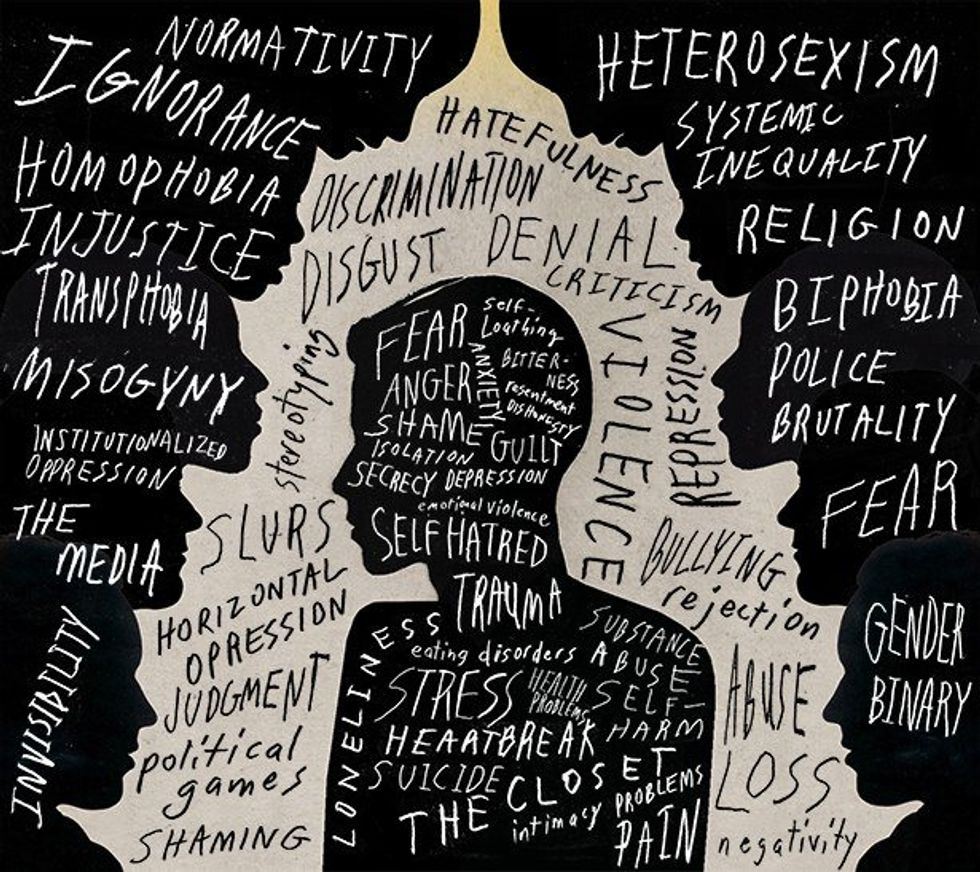 NORMATIVITY
IGNORANCE
HOMOPHOBIA
INJUSTICE
TRANSPHOBIA
MISOGYNY
INSTITUTIONALIZED
OPPRESSION
THE
MEDIA
INVISIBILITY
HATEFULNESS
DISCRIMINATION
DISGUST
DENIAL
CRITICISM
stereotyping
VIOLENCE
REPRESSION
SLURS
HORIZONTAL
OPRESSION
JUDGMENT
political
games
SHAMING
BULLYING
rejection
ABUSE
LOSS
negativity
FEAR
self-
Loathing
ANXIETY
BITTER-
NESS
ANGER
resentment
DISHONESTY
SHAME
GUILT
ISOLATION
SECRECY DEPRESSION
emotional violence
SELF HATRED
TRAUMA
LONELINESS
eating disorders
SUBSTANCE
ABUSE
STRESS
HEALTH
PROBLEMS
SELF-
HARM
HEARTBREAK
SUICIDE
THE CLOSET
intimacy PROBLEMS
PAIN
HETEROSEXISM
SYSTEMIC
INEQUALITY
RELIGION
BIPHOBIA
POLICE
BRUTALITY
FEAR
GENDER
BINARY